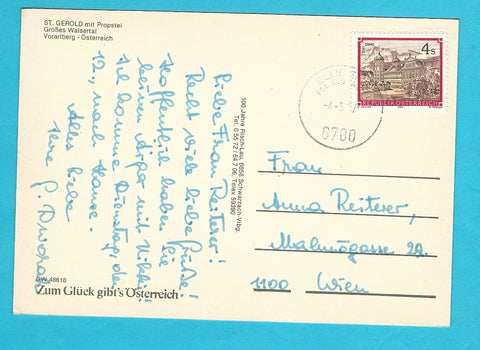 ST. GEROLD mit Propstei
Großes Walsertal
Vorarlberg - Österreich
Liebe Frau Reiterer!
Recht viele liebe Grüße!
Hoffentlich haben Sie
keinen Ärger mit Nikki!
Ich komme Dienstag, den
12., nach Hause.
Alles Liebe
Ihre G.
100 Jahre Rüsch-Lau, 6858 Schwarzach-Vlbg.
Tel. 0 55 72 / 64 7 06, Telex 59390
GW 48618
Zum Glück gibt's Österreich
4 S
REPUBLIK ÖSTERREICH
6700
Frau
Anna Reiterer,
Malmögasse 29.
1100 Wien